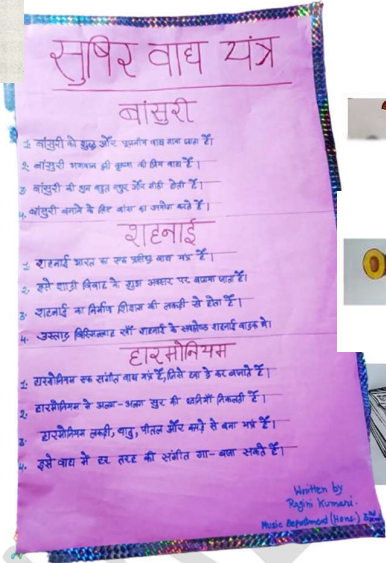 सुषिर वाद्य यंत्र
बांसुरी
1. बांसुरी को शुद्ध और प्राचीन वाद्य माना जाता है।
2. बांसुरी भगवान श्री कृष्ण की प्रिय वाद्य है।
3. बांसुरी की धुन बहुत मधुर और मीठी होती है।
4. बांसुरी बनाने के लिए बांस का उपयोग करते है।
शहनाई
1. शहनाई भारत का एक प्रसिद्ध वाद्य यंत्र है।
2. इसे शादी विवाह के शुभ अवसर पर बजाया जाता है।
3. शहनाई का निर्माण शीशम की लकड़ी से होता है।
4. उस्ताद बिस्मिल्लाह खाँ शहनाई के सर्वश्रेष्ठ शहनाई वादक थे।
हारमोनियम
1. हारमोनियम एक संगीत वाद्य यंत्र है, जिसे हवा दे कर बजाते है।
2. हारमोनियम से अलग-अलग सुर की ध्वनियाँ निकलती है।
3. हारमोनियम लकड़ी, धातु, पीतल और कपड़े से बना यंत्र है।
4. इसे वाद्य में हर तरह की संगीत गा-बजा सकते है।
Written by
Ragini Kumari.
Music Department (Hons.)